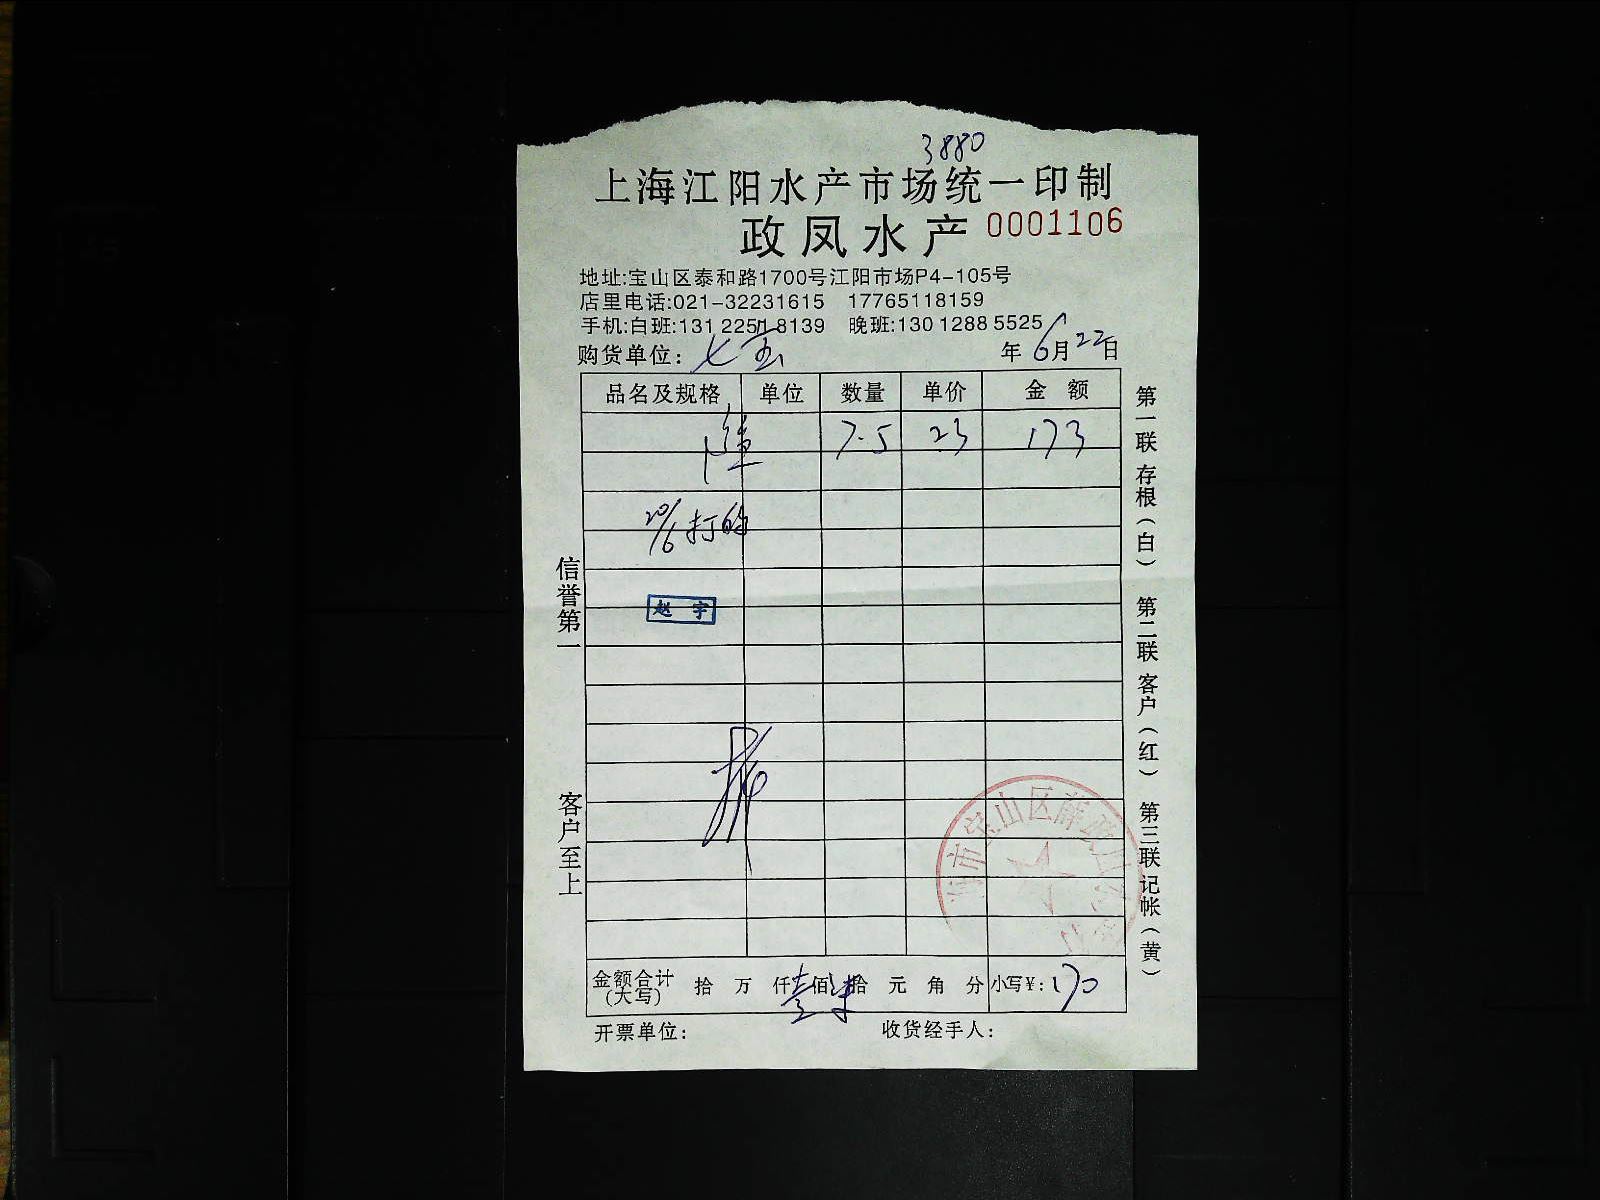 3880
上海江阳水产市场统一印制
政凤水产 0001106
地址:宝山区泰和路1700号江阳市场P4-105号
店里电话:021-32231615 17765118159
手机:白班:131 2251 8139 晚班:130 1288 5525
购货单位: 七宝 年 6月22日
品名及规格 单位 数量 单价 金 额
7.5 23 173
20/6 打的
赵 宇
金额合计(大写) 拾 万 仟 壹佰 柒拾 元 角 分 小写¥: 170
开票单位: 收货经手人:
信誉第一
客户至上
第一联 存根(白) 第二联 客户(红) 第三联 记帐(黄)
市宝山区薛政